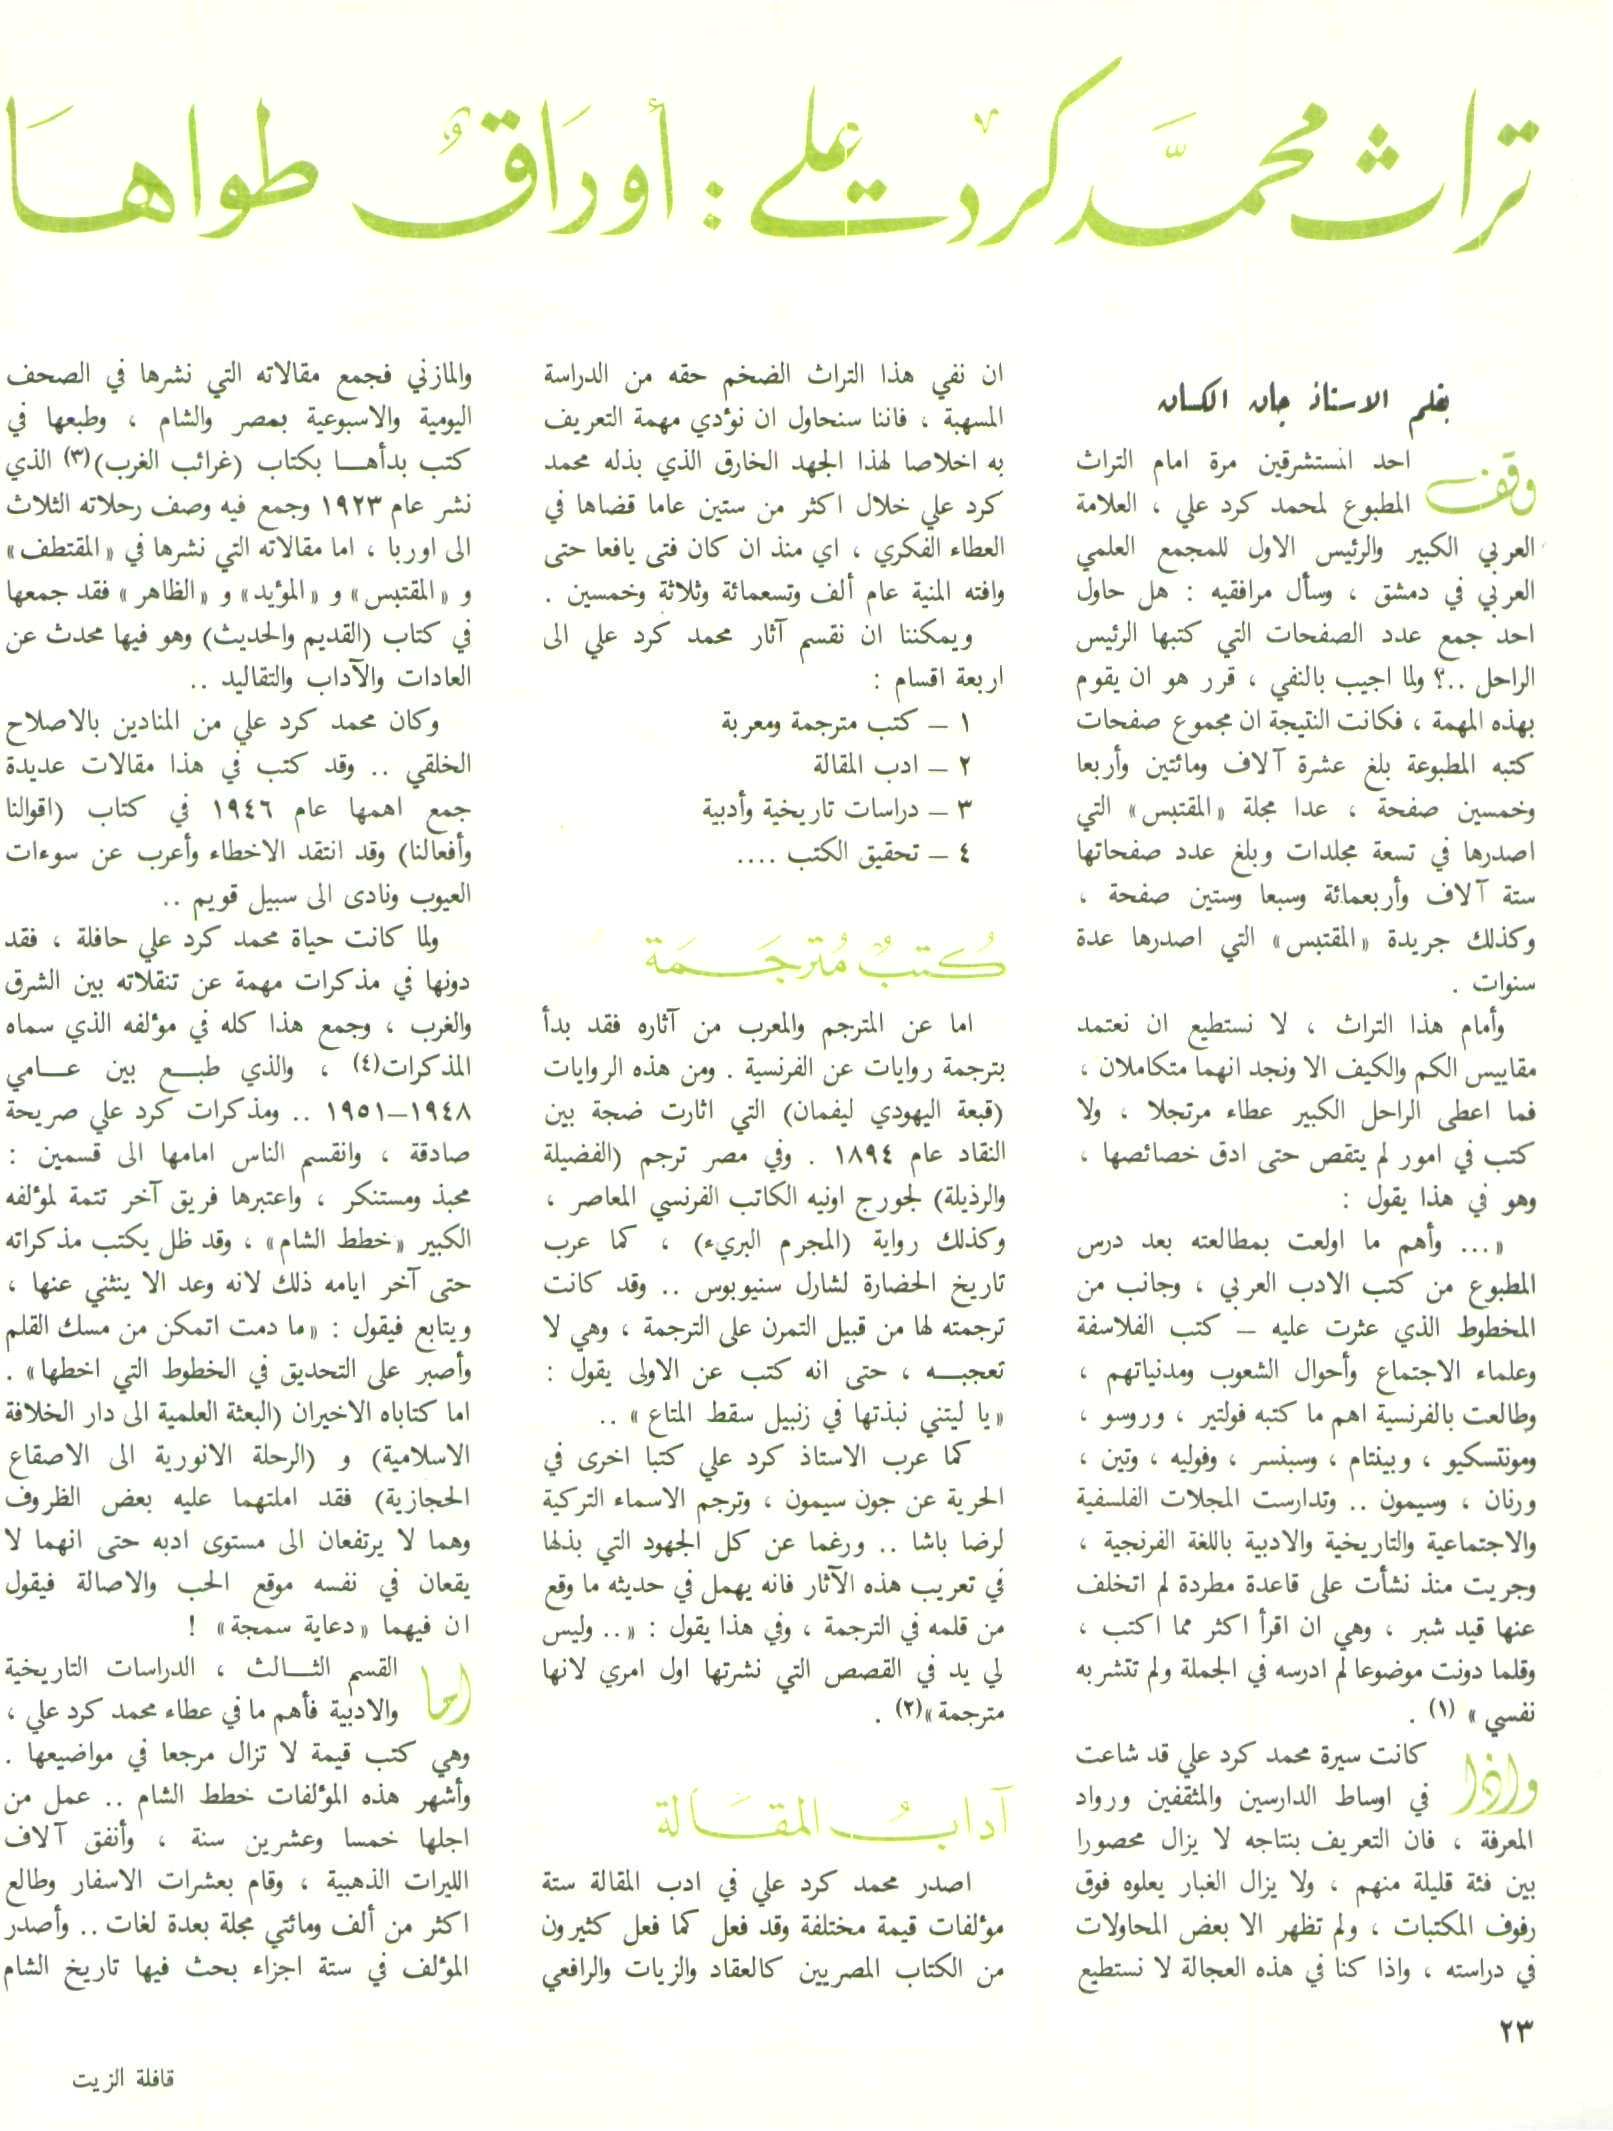 تراث محمَّد كرد علي : أورَاقٌ طواهَا
بقلم الاستاذ جان الكسان
وقف احد المستشرقين مرة امام التراث
المطبوع لمحمد كرد علي ، العلامة
العربي الكبير والرئيس الاول للمجمع العلمي
العربي في دمشق ، وسأل مرافقيه : هل حاول
احد جمع عدد الصفحات التي كتبها الرئيس
الراحل ..؟ ولما اجيب بالنفي ، قرر هو ان يقوم
بهذه المهمة ، فكانت النتيجة ان مجموع صفحات
كتبه المطبوعة بلغ عشرة آلاف ومائتين وأربعا
وخمسين صفحة ، عدا مجلة «المقتبس» التي
اصدرها في تسعة مجلدات وبلغ عدد صفحاتها
ستة آلاف وأربعمائة وسبعا وستين صفحة ،
وكذلك جريدة «المقتبس» التي اصدرها عدة
سنوات .
وأمام هذا التراث ، لا نستطيع ان نعتمد
مقاييس الكم والكيف الا ونجد انهما متكاملان ،
فما اعطى الراحل الكبير عطاء مرتجلا ، ولا
كتب في امور لم يتقص حتى ادق خصائصها ،
وهو في هذا يقول :
«... وأهم ما اولعت بمطالعته بعد درس
المطبوع من كتب الادب العربي ، وجانب من
المخطوط الذي عثرت عليه – كتب الفلاسفة
وعلماء الاجتماع وأحوال الشعوب ومدنياتهم ،
وطالعت بالفرنسية اهم ما كتبه فولتير ، وروسو ،
ومونتسكيو ، وبينتام ، وسبنسر ، وفوليه ، وتين ،
ورنان ، وسيمون .. وتدارست المجلات الفلسفية
والاجتماعية والتاريخية والادبية باللغة الفرنجية ،
وجريت منذ نشأت على قاعدة مطردة لم اتخلف
عنها قيد شبر ، وهي ان اقرأ اكثر مما اكتب ،
وقلما دونت موضوعا لم ادرسه في الجملة ولم تتشربه
نفسي» (١) .
واذا كانت سيرة محمد كرد علي قد شاعت
في اوساط الدارسين والمثقفين ورواد
المعرفة ، فان التعريف بنتاجه لا يزال محصورا
بين فئة قليلة منهم ، ولا يزال الغبار يعلوه فوق
رفوف المكتبات ، ولم تظهر الا بعض المحاولات
في دراسته ، واذا كنا في هذه العجالة لا نستطيع
ان نفي هذا التراث الضخم حقه من الدراسة
المسهبة ، فاننا سنحاول ان نؤدي مهمة التعريف
به اخلاصا لهذا الجهد الخارق الذي بذله محمد
كرد علي خلال اكثر من ستين عاما قضاها في
العطاء الفكري ، اي منذ ان كان فتى يافعا حتى
وافته المنية عام ألف وتسعمائة وثلاثة وخمسين .
ويمكننا ان نقسم آثار محمد كرد علي الى
اربعة اقسام :
١ – كتب مترجمة ومعربة
٢ – ادب المقالة
٣ – دراسات تاريخية وأدبية
٤ – تحقيق الكتب ....
كُتبٌ مُترجَمَة
اما عن المترجم والمعرب من آثاره فقد بدأ
بترجمة روايات عن الفرنسية . ومن هذه الروايات
(قبعة اليهودي ليفمان) التي اثارت ضجة بين
النقاد عام ١٨٩٤ . وفي مصر ترجم (الفضيلة
والرذيلة) لجورج اونيه الكاتب الفرنسي المعاصر ،
وكذلك رواية (المجرم البريء) ، كما عرب
تاريخ الحضارة لشارل سنيوبوس .. وقد كانت
ترجمته لها من قبيل التمرن على الترجمة ، وهي لا
تعجبه ، حتى انه كتب عن الاولى يقول :
«يا ليتني نبذتها في زنبيل سقط المتاع» ..
كما عرب الاستاذ كرد علي كتبا اخرى في
الحرية عن جون سيمون ، وترجم الاسماء التركية
لرضا باشا .. ورغما عن كل الجهود التي بذلها
في تعريب هذه الآثار فانه يهمل في حديثه ما وقع
من قلمه في الترجمة ، وفي هذا يقول : «.. وليس
لي يد في القصص التي نشرتها اول امري لانها
مترجمة»(٢) .
آدابُ المقَالة
اصدر محمد كرد علي في ادب المقالة ستة
مؤلفات قيمة مختلفة وقد فعل كما فعل كثيرون
من الكتاب المصريين كالعقاد والزيات والرافعي
والمازني فجمع مقالاته التي نشرها في الصحف
اليومية والاسبوعية بمصر والشام ، وطبعها في
كتب بدأها بكتاب (غرائب الغرب)(٣) الذي
نشر عام ١٩٢٣ وجمع فيه وصف رحلاته الثلاث
الى اوربا ، اما مقالاته التي نشرها في «المقتطف»
و «المقتبس» و «المؤيد» و «الظاهر» فقد جمعها
في كتاب (القديم والحديث) وهو فيها محدث عن
العادات والآداب والتقاليد ..
وكان محمد كرد علي من المنادين بالاصلاح
الخلقي .. وقد كتب في هذا مقالات عديدة
جمع اهمها عام ١٩٤٦ في كتاب (اقوالنا
وأفعالنا) وقد انتقد الاخطاء وأعرب عن سوءات
العيوب ونادى الى سبيل قويم ..
ولما كانت حياة محمد كرد علي حافلة ، فقد
دونها في مذكرات مهمة عن تنقلاته بين الشرق
والغرب ، وجمع هذا كله في مؤلفه الذي سماه
المذكرات(٤) ، والذي طبع بين عامي
١٩٤٨–١٩٥١ .. ومذكرات كرد علي صريحة
صادقة ، وانقسم الناس امامها الى قسمين :
محبذ ومستنكر ، واعتبرها فريق آخر تتمة لمؤلفه
الكبير «خطط الشام» ، وقد ظل يكتب مذكراته
حتى آخر ايامه ذلك لانه وعد الا ينثني عنها ،
ويتابع فيقول : «ما دمت اتمكن من مسك القلم
وأصبر على التحديق في الخطوط التي اخطها» .
اما كتاباه الاخيران (البعثة العلمية الى دار الخلافة
الاسلامية) و (الرحلة الانورية الى الاصقاع
الحجازية) فقد املتهما عليه بعض الظروف
وهما لا يرتفعان الى مستوى ادبه حتى انهما لا
يقعان في نفسه موقع الحب والاصالة فيقول
ان فيهما «دعاية سمجة» !
اما القسم الثالث ، الدراسات التاريخية
والادبية فأهم ما في عطاء محمد كرد علي ،
وهي كتب قيمة لا تزال مرجعا في مواضيعها .
وأشهر هذه المؤلفات خطط الشام .. عمل من
اجلها خمسا وعشرين سنة ، وأنفق آلاف
الليرات الذهبية ، وقام بعشرات الاسفار وطالع
اكثر من ألف ومائتي مجلة بعدة لغات .. وأصدر
المؤلف في ستة اجزاء بحث فيها تاريخ الشام
٢٣
قافلة الزيت